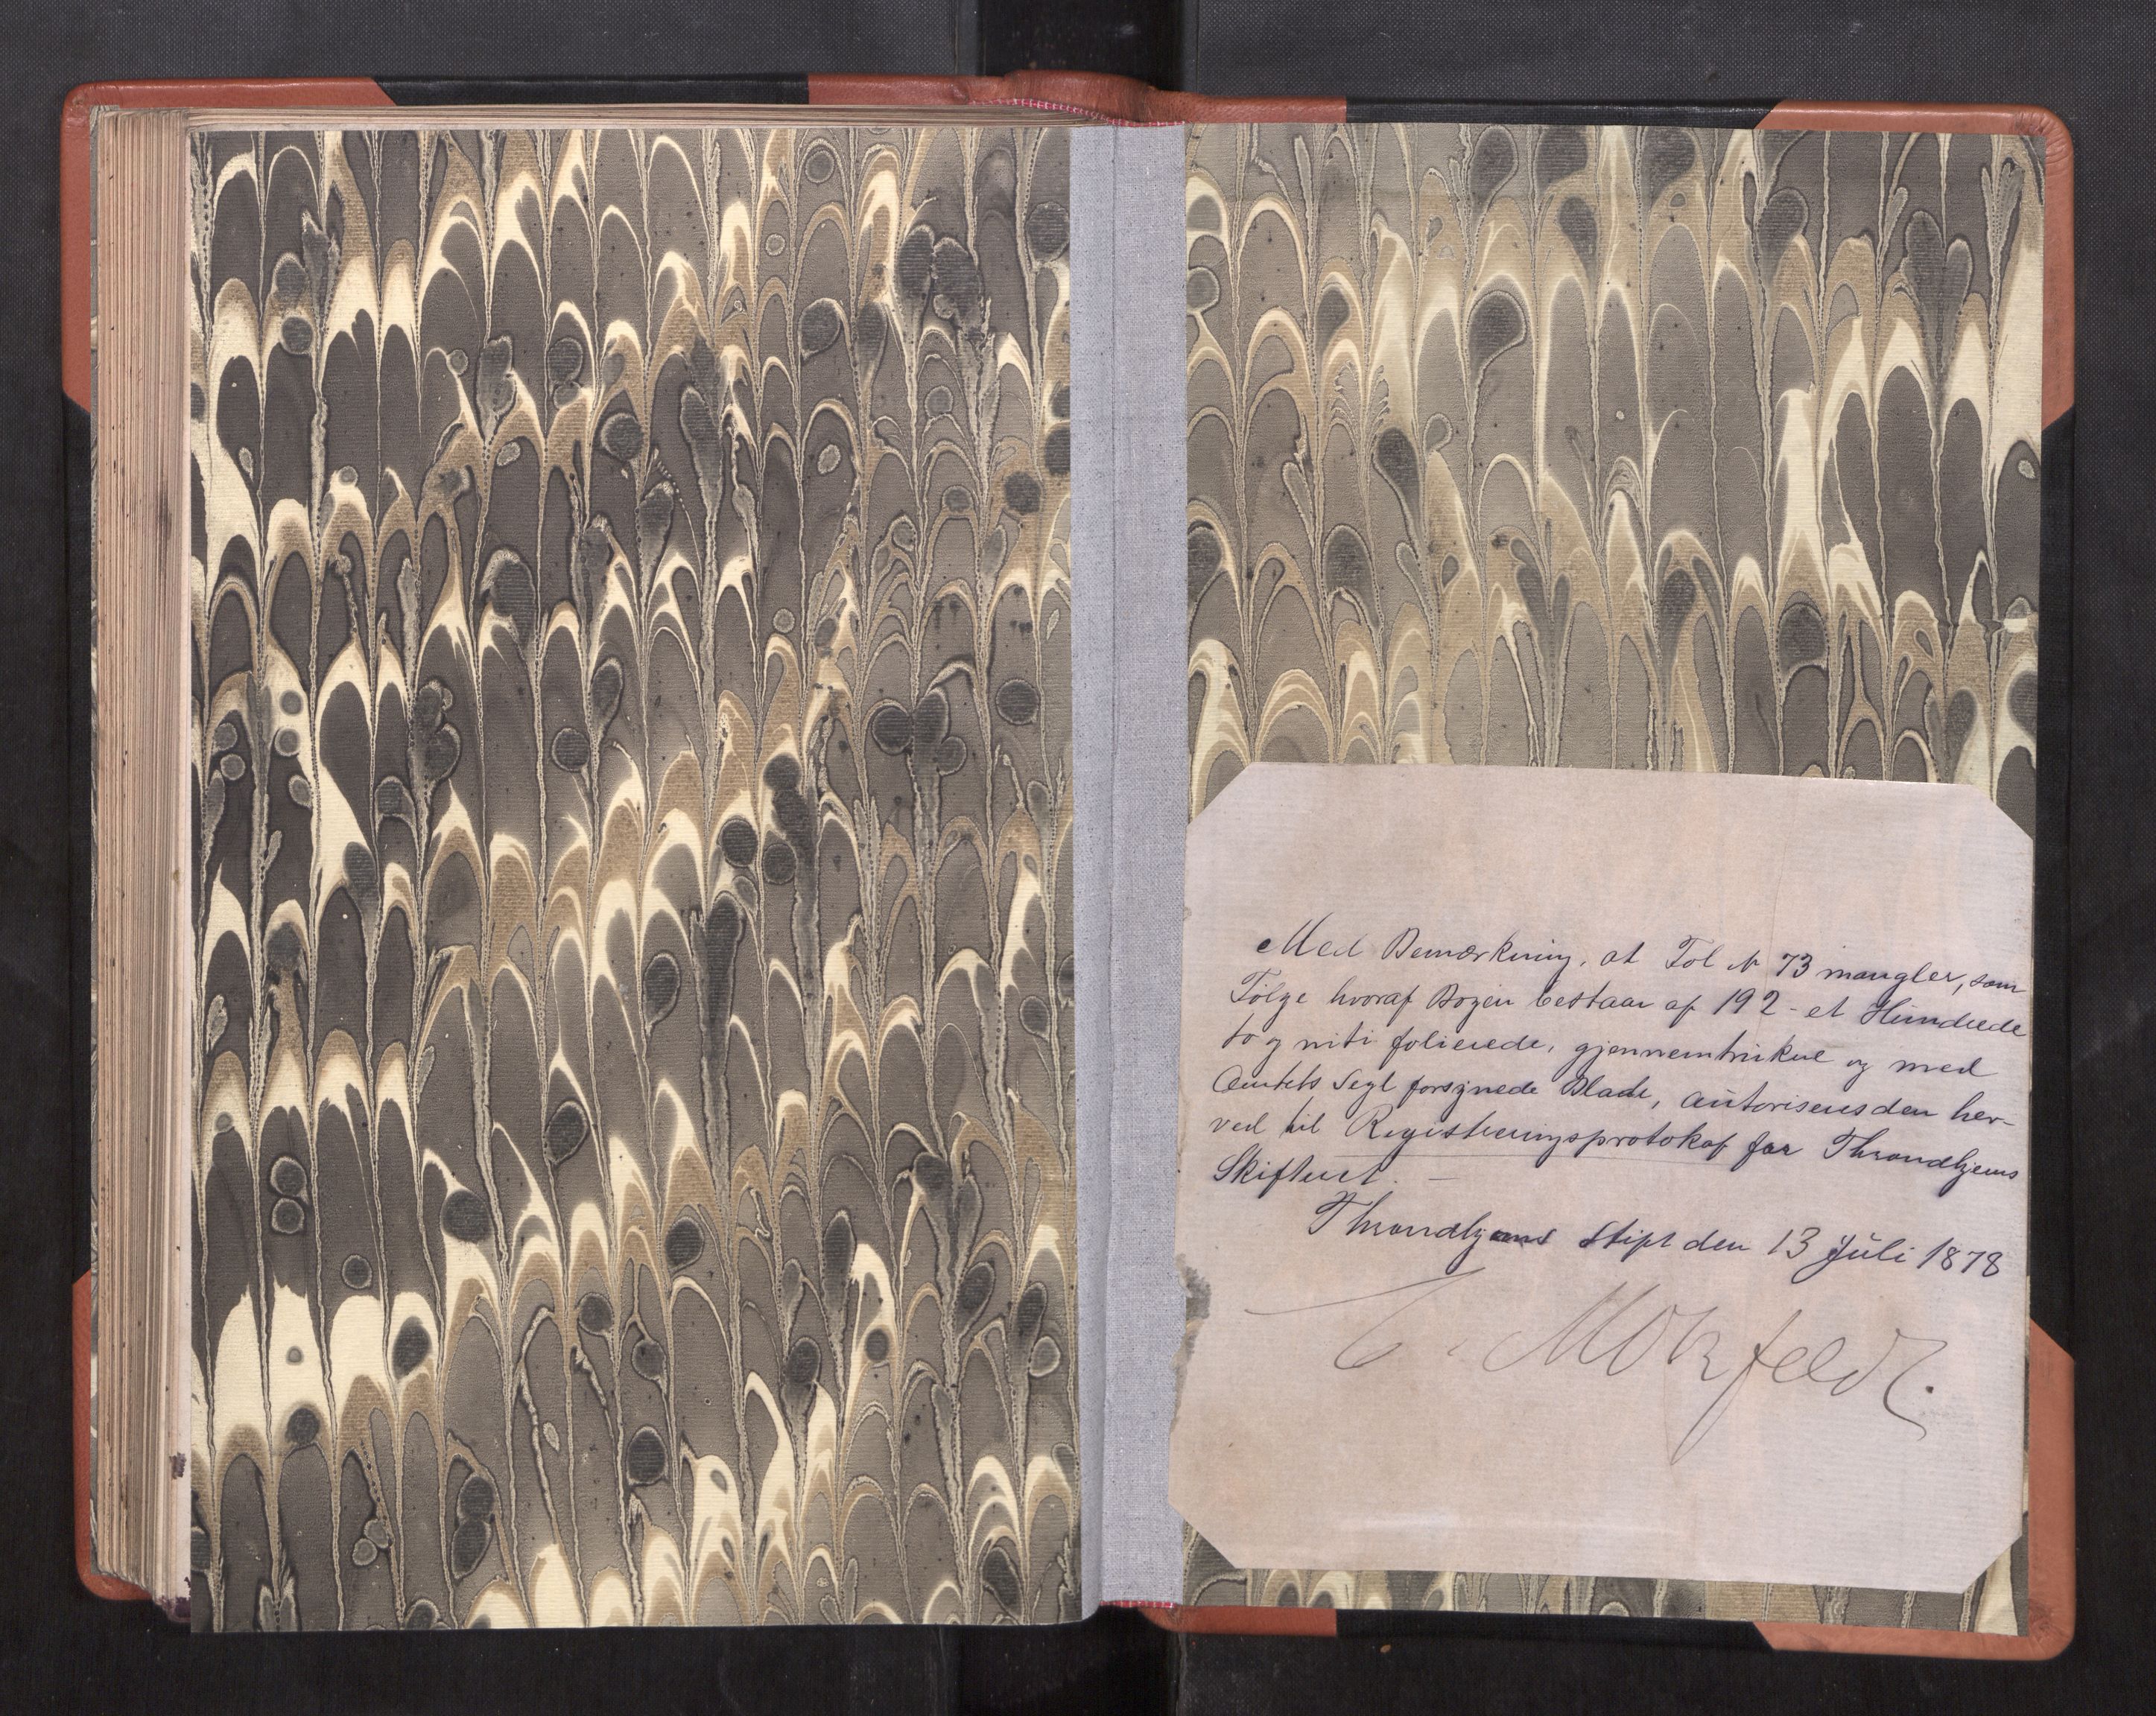 Med Bemærkning, at Fol № 73 mangler, som
Følge hvoraf Bogen bestaar af 192 - et Hundrede
to og niti folierede, gjennemtrukne og med
Amtets Segl forsynede Blade, autoriseres den her-
ved til Registreringsprotokol for Throndhjems
Skifteret. —
Throndhjems Stift den 13 Juli 1878
C. Motzfeldt.